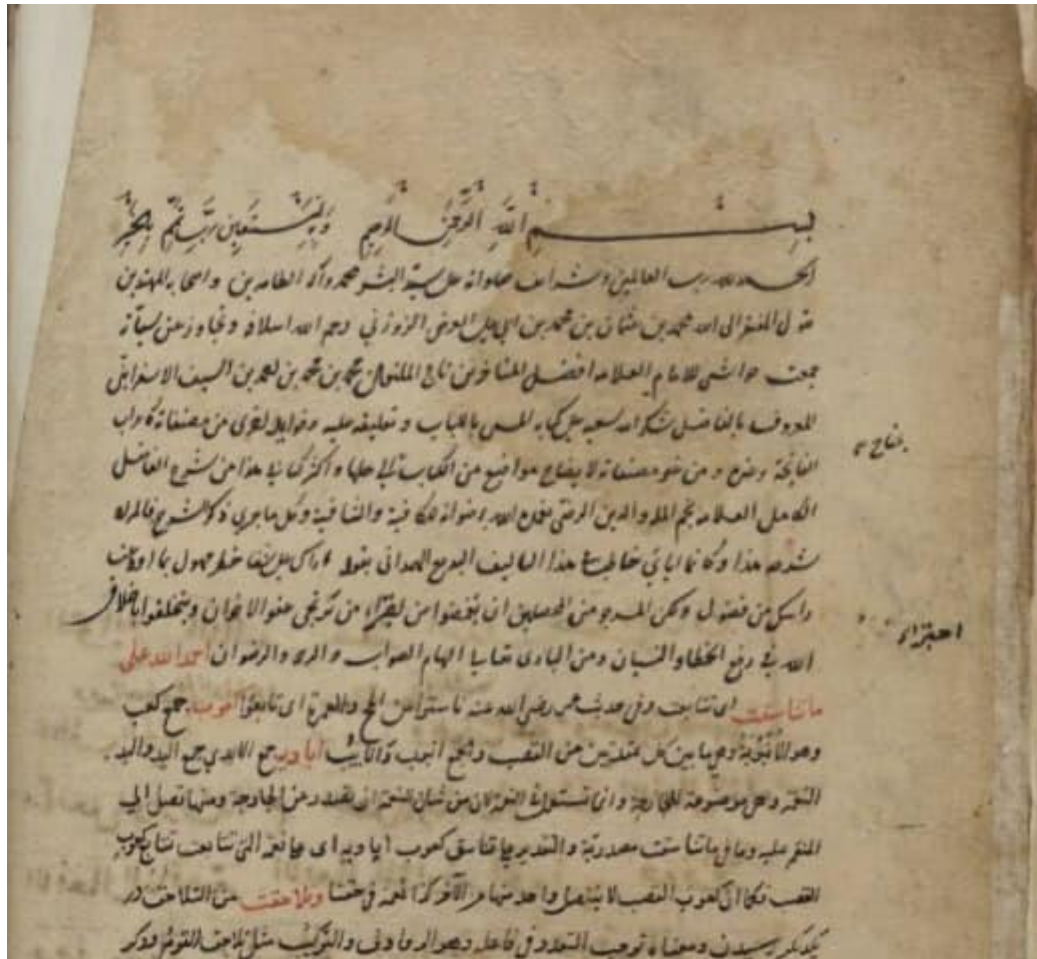 بسم الله الرحمن الرحيم وبه نستعين رب تمم بالخير
الحمد لله رب العالمين وشرايف صلواته على سيد البشر محمد وآله الطاهرين واصحابه المهتدين
يقول المفتقر الى الله محمد بن عثمان بن محمد بن ابي علي الزوزني رحم الله اسلافه وتجاوز عن سيآته
جمعت حواشي للامام العلامه افضل المتأخرين تاج الملة محمد بن محمد بن احمد بن السيف الاسفرايني
المعروف بالفاضل شكر الله سعيه على كتابه المسمى باللباب وتعليقه عليه وفوايد اخرى من مصنفاته كابواب
الفاتحة ومن نحو مصنفاته لا يضاح مواضع من الكتاب واكثر كتابي هذا من شرح الفاضل
مفتاح
الكامل العلامه نجم الملة والدين الرضي تغمده الله برضوانه للكافية والشافية وكل ما جرى ذكر الشرح فالمراد
شرحه هذا وكانما اياي خاطب هذا التاليف البديع الهمداني بقوله اراك على شفا خطر مهول بما اودعت
راسك من فضول ولكن المرجو من المحصلين ان يغضوا من ترتجى عفو الاخوان ويتخلقوا باخلاق
اجتزاء
الله في رفع الخطا والنسيان ومن البادى تعالى الهام الصواب والرى والرضوان احمد الله على
ما تناسقت اى تتابعت وفي حديث عمر رضي الله عنه ناسقوا بين الحج والعمرة اى تابعوا كعوب جمع كعب
وهو الانبوبة وهي ما بين كل عقدتين من القصب والجمع انبوب وانابيب اياديه جمع الايدي جمع اليد واليد
النعمة وهي موضوعة للجارحة وانما تستعمل في النعمة لان من شان النعمة ان تصدر من الجارحة ومنها تصل الى
المنعم عليه وما في ما تناسقت مصدرية والتقدير على تناسق كعوب اياديه اى على نعمه التي تتابعت تتابع كعوب
القصب وكما ان كعوب القصب لا ينفصل واحد منها من الآخر كذا نعمه في حقنا وتلاحقت من التلاحق در
يكديكر رسيدن ومعناه توجب التعدد في فاعله وهو الروادف والتركيب مثل تلاحق القوم وذكر